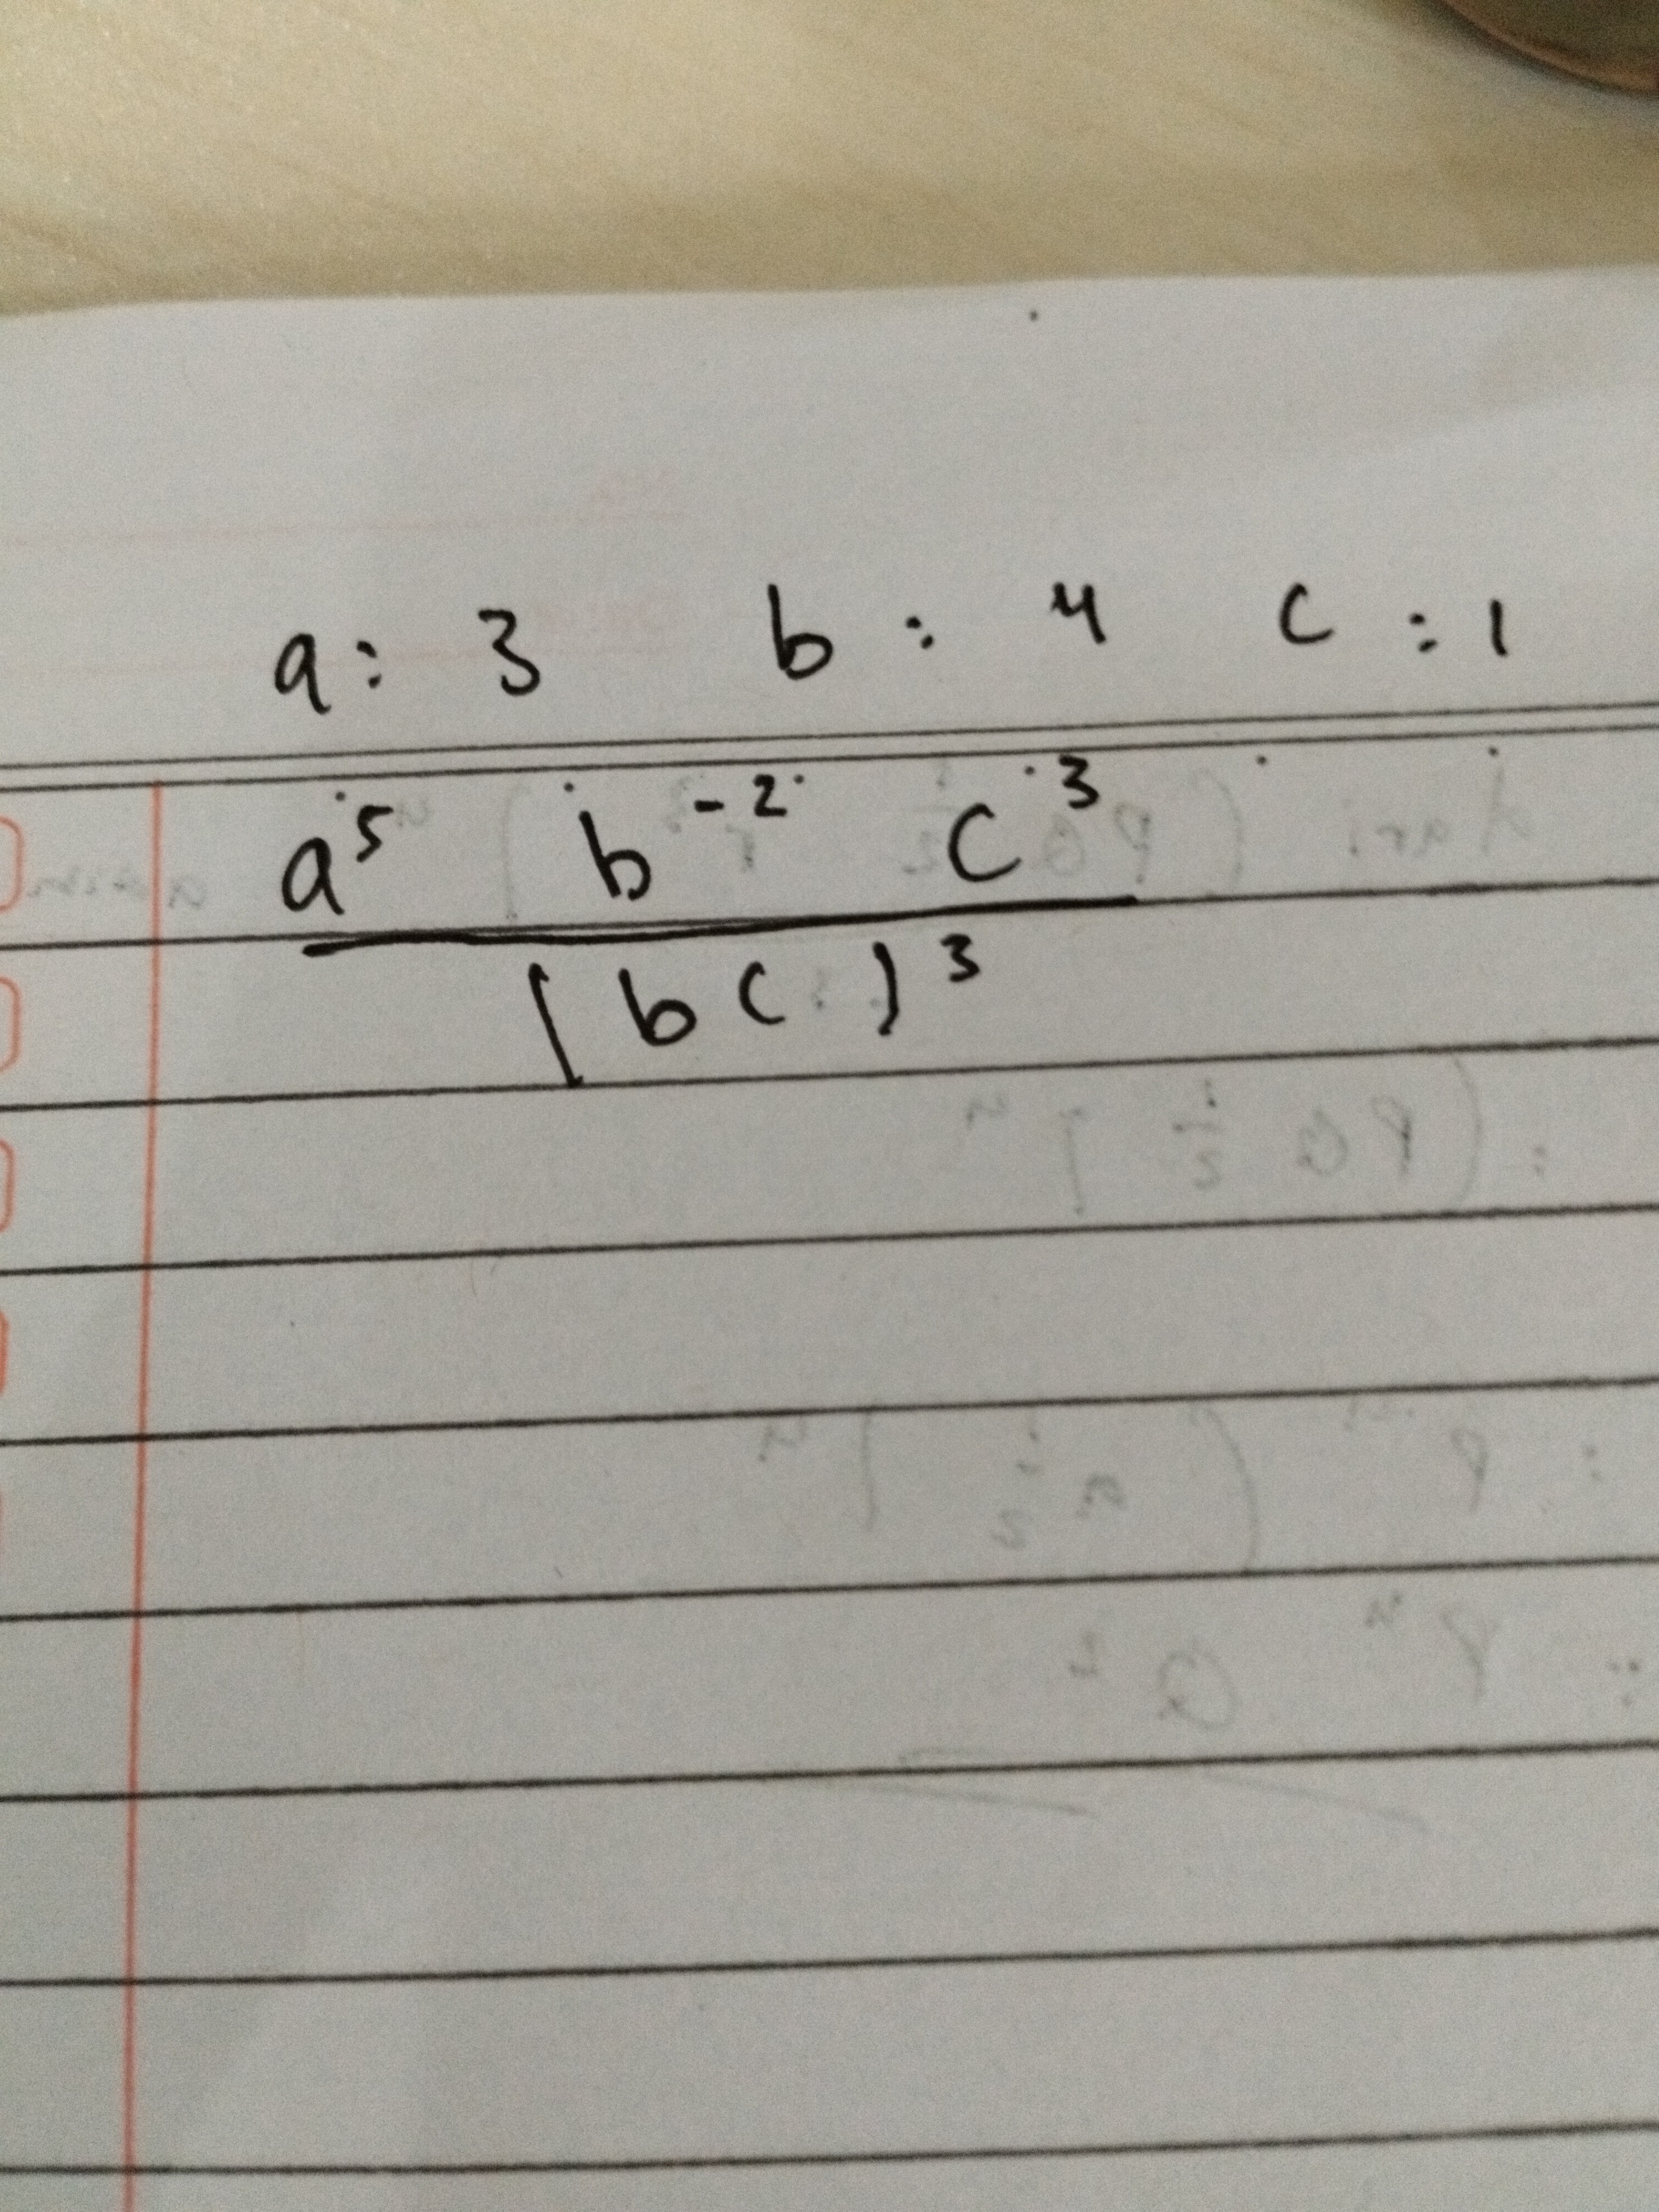 a : 3 b : 4 c : 1
a⁵ b⁻² c³
(bc)³